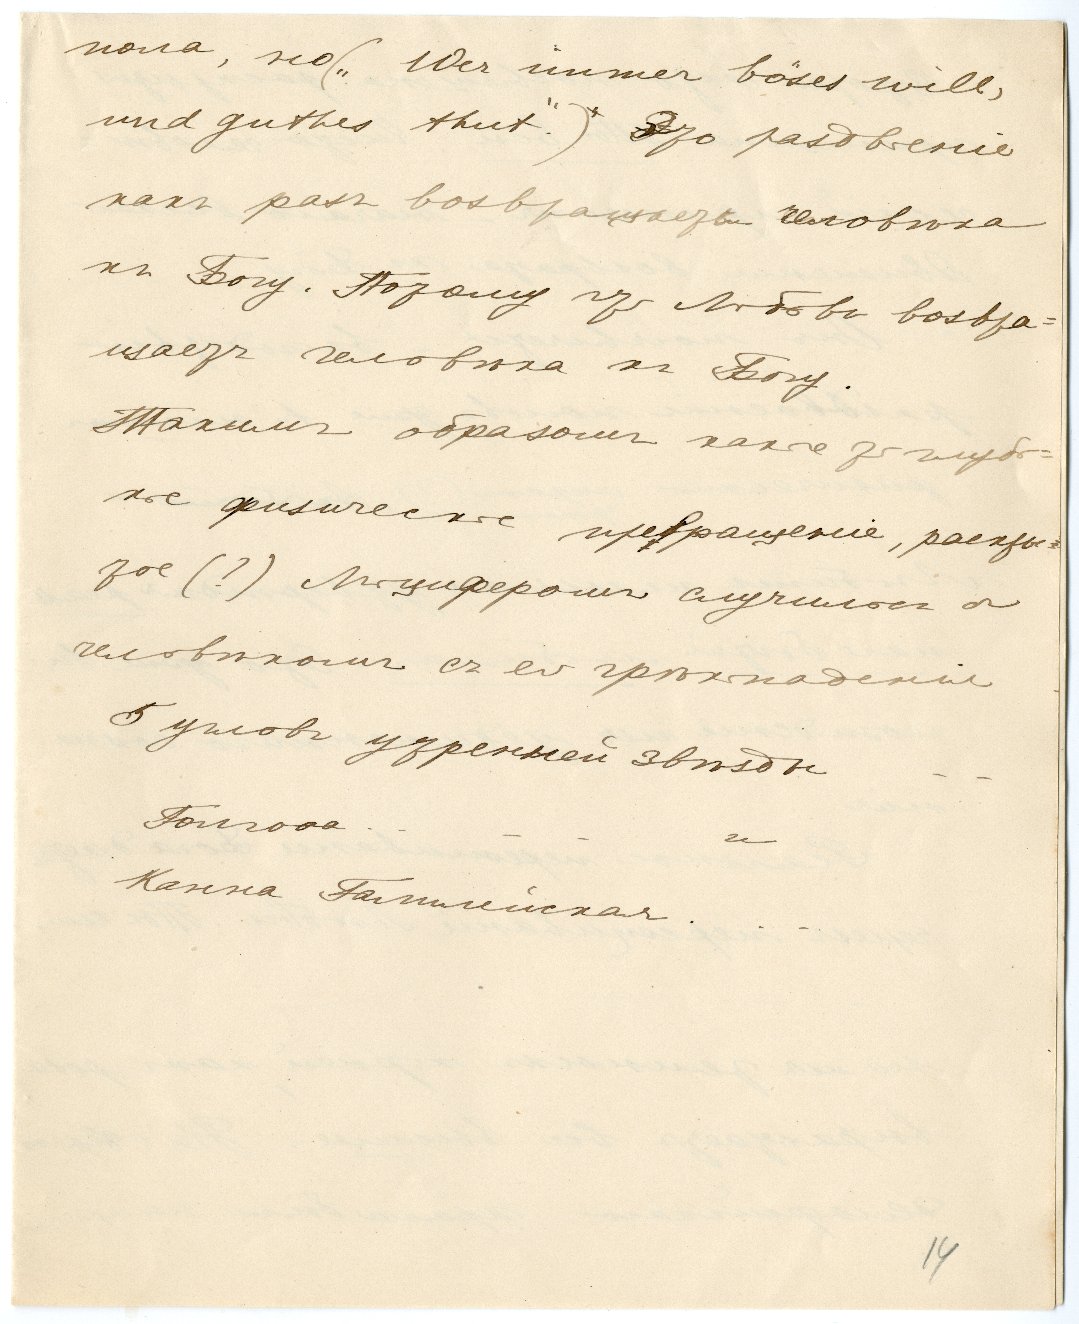 пола, но („Wer immer böses will,
und guthes thut.")" Это раздвоеніе
какъ разъ возвращаетъ человѣка
къ Богу. Потому что Любовь возвра=
щаетъ человѣка къ Богу.
Такимъ образомъ какое то глубо=
кое физическое превращеніе,
тое (?) Люциферомъ случилось съ
человѣкомъ съ его грѣхопаденіе
5 угловъ утренней звѣзды - -
Голгоѳа - - - - и
Канна Галилейская. . -
14